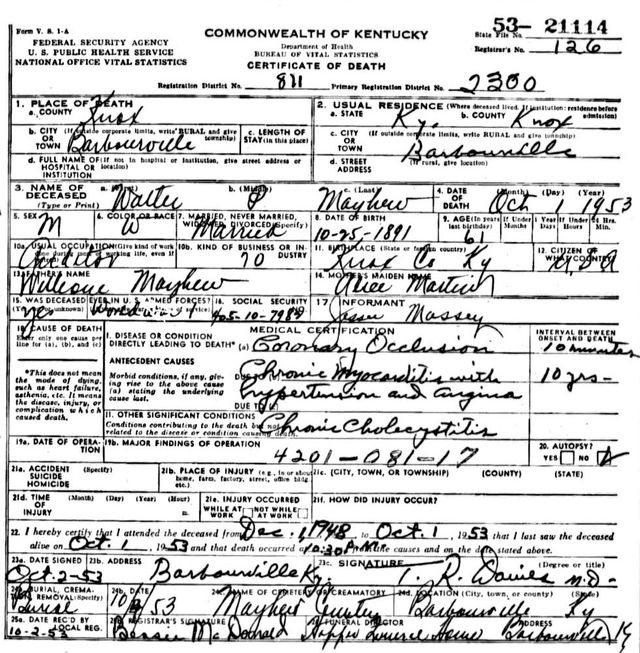 Form V. S. 1-A
FEDERAL SECURITY AGENCY
U. S. PUBLIC HEALTH SERVICE
NATIONAL OFFICE VITAL STATISTICS
COMMONWEALTH OF KENTUCKY
Department of Health
BUREAU OF VITAL STATISTICS
CERTIFICATE OF DEATH
53- 21114
State File No.
Registrar's No. 126
Registration District No. 811 Primary Registration District No. 2300
1. PLACE OF DEATH
a. COUNTY Knox
b. CITY (If outside corporate limits, write RURAL and give township)
OR TOWN Barbourville
c. LENGTH OF STAY (in this place)
d. FULL NAME OF (If not in hospital or institution, give street address or location)
HOSPITAL OR INSTITUTION
2. USUAL RESIDENCE (Where deceased lived. If institution: residence before admission)
a. STATE Ky. b. COUNTY Knox
c. CITY (If outside corporate limits, write RURAL and give township)
OR TOWN Barbourville
d. STREET ADDRESS (If rural, give location)
3. NAME OF DECEASED (Type or Print)
a. (First) Walter b. (Middle) P c. (Last) Mayhew
4. DATE OF DEATH (Month) (Day) (Year) Oct 1 1953
5. SEX M
6. COLOR OR RACE W
7. MARRIED, NEVER MARRIED, WIDOWED, DIVORCED (Specify) Married
8. DATE OF BIRTH 10-25-1891
9. AGE (In years last birthday) 61 If Under 1 Year Months Days If Under 24 Hrs. Hours Min.
10a. USUAL OCCUPATION (Give kind of work done during most of working life, even if retired)
10b. KIND OF BUSINESS OR INDUSTRY 70
11. BIRTHPLACE (State or foreign country) Knox Co Ky
12. CITIZEN OF WHAT COUNTRY? U.S.A
13. FATHER'S NAME Mayhew
14. MOTHER'S MAIDEN NAME Alice Martin
15. WAS DECEASED EVER IN U. S. ARMED FORCES? yes World War
16. SOCIAL SECURITY
17. INFORMANT Massey
18. CAUSE OF DEATH
Enter only one cause per line for (a), (b), and (c)
*This does not mean the mode of dying, such as heart failure, asthenia, etc. It means the disease, injury, or complication which caused death.
MEDICAL CERTIFICATION
INTERVAL BETWEEN ONSET AND DEATH
I. DISEASE OR CONDITION DIRECTLY LEADING TO DEATH* (a) Coronary Occlusion 10 minutes
ANTECEDENT CAUSES
Morbid conditions, if any, giving rise to the above cause (a) stating the underlying cause last.
DUE TO (b) Chronic Myocarditis with Hypertension and Angina 10 yrs-
DUE TO (c)
II. OTHER SIGNIFICANT CONDITIONS
Conditions contributing to the death but not related to the disease or condition causing death. Chronic Cholecystitis
19a. DATE OF OPERATION
19b. MAJOR FINDINGS OF OPERATION
4201-081-17
20. AUTOPSY? YES NO
21a. ACCIDENT SUICIDE HOMICIDE (Specify)
21b. PLACE OF INJURY (e.g., in or about home, farm, factory, street, office bldg. etc.)
21c. (CITY, TOWN, OR TOWNSHIP) (COUNTY) (STATE)
21d. TIME OF INJURY (Month) (Day) (Year) (Hour) m.
21e. INJURY OCCURRED WHILE AT WORK NOT WHILE AT WORK
21f. HOW DID INJURY OCCUR?
22. I hereby certify that I attended the deceased from Dec. 1, 1948 to Oct. 1, 1953 that I last saw the deceased
alive on Oct. 1, 1953 and that death occurred at 10:30 P.M. from the causes and on the date stated above.
23a. DATE SIGNED Oct-2-53
23b. ADDRESS Barbourville Ky
23c. SIGNATURE T. R. Davies (Degree or title) M.D.
24a. BURIAL, CREMATION, REMOVAL (Specify) Burial
24b. DATE 10 3 53
24c. NAME OF CEMETERY OR CREMATORY Mayhew Cemetery
24d. LOCATION (City, town, or county) (State) Barbourville Ky
25a. DATE REC'D BY LOCAL REG. 10-2-53
25b. REGISTRAR'S SIGNATURE Bessie McDonald
FUNERAL DIRECTOR Hopper Funeral Home Barbourville Ky